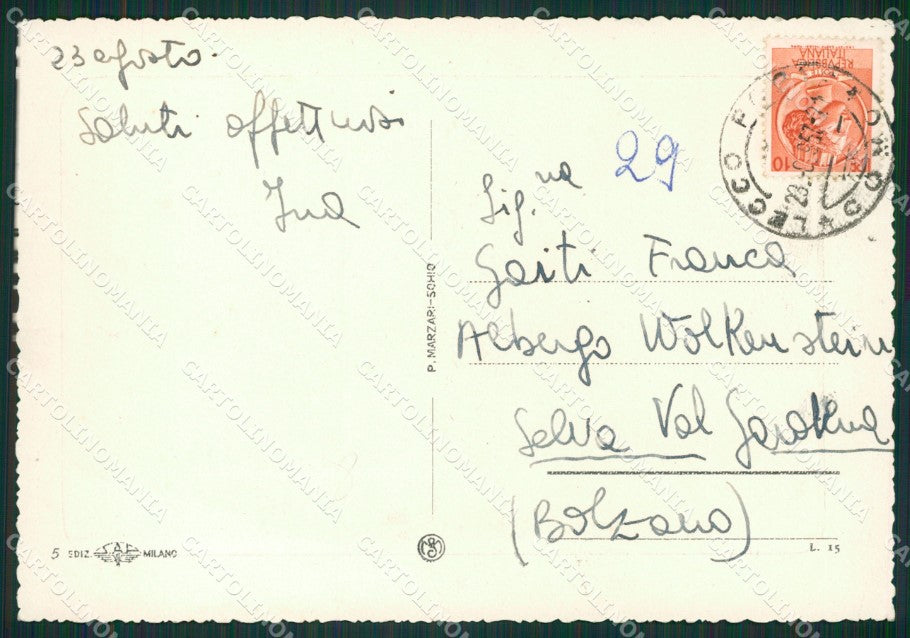 23 agosto.
Saluti affettuosi
Ina
29
Sig.na
Gaiti Franca
Albergo Wolkenstein
Selva Val Gardena
(Bolzano)
REPVBBLICA
ITALIANA
10
LECCO
P. MARZARI-SCHIO
5 EDIZ. SAF MILANO
L. 15
CARTOLINOMANIA